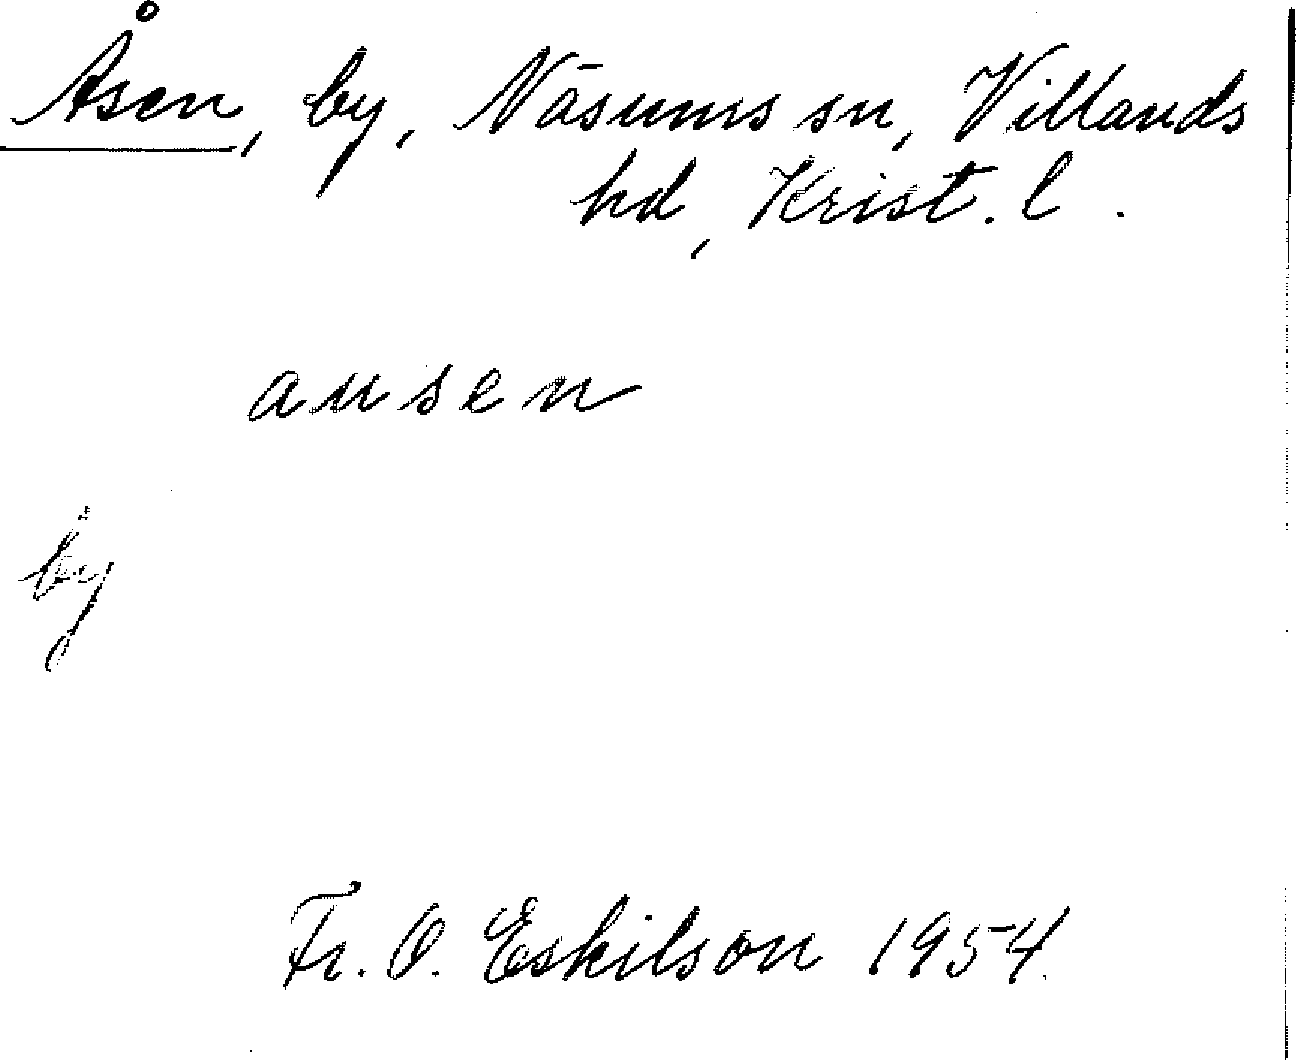 Åsen, by, Näsums sn, Villands
hd, Krist. l.
ausen
by
Fr. O. Eskilson 1954.